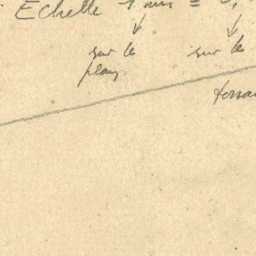 Echelle 1 mm =
sur le
plan
sur le